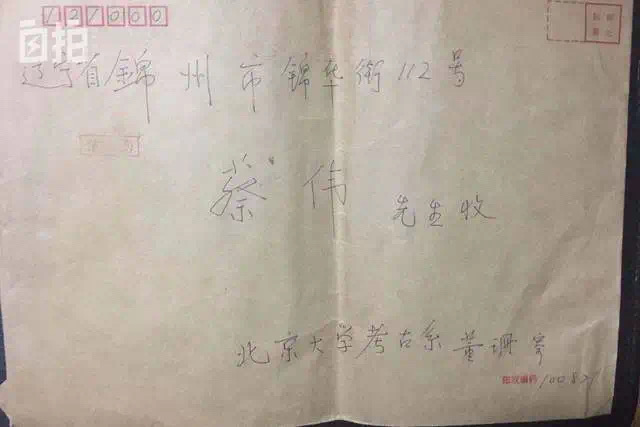 自拍
121000
辽宁省錦州市錦华街112号
蔡伟先生收
北京大学考古系董珊寄
邮政编码 100871